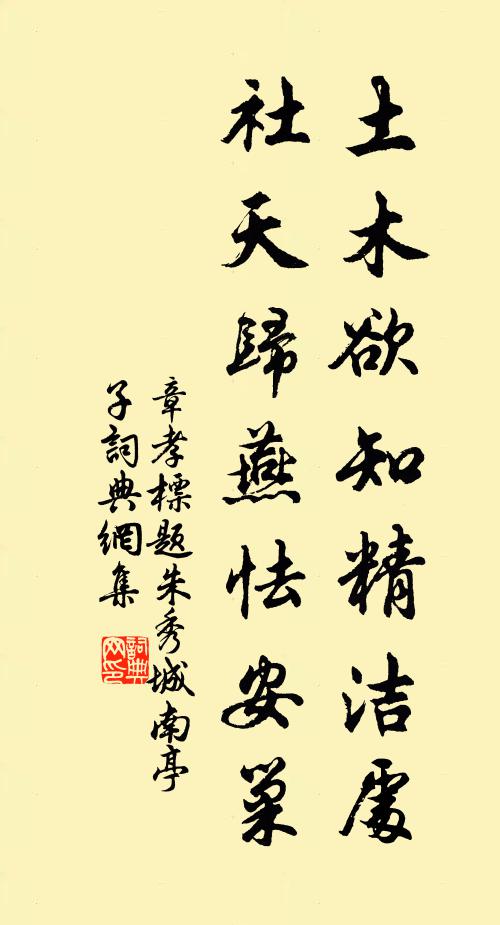 土木欲知精洁處
社天歸燕怯安巢
章孝標题朱秀城南亭
子詞典網集
詞典
网印